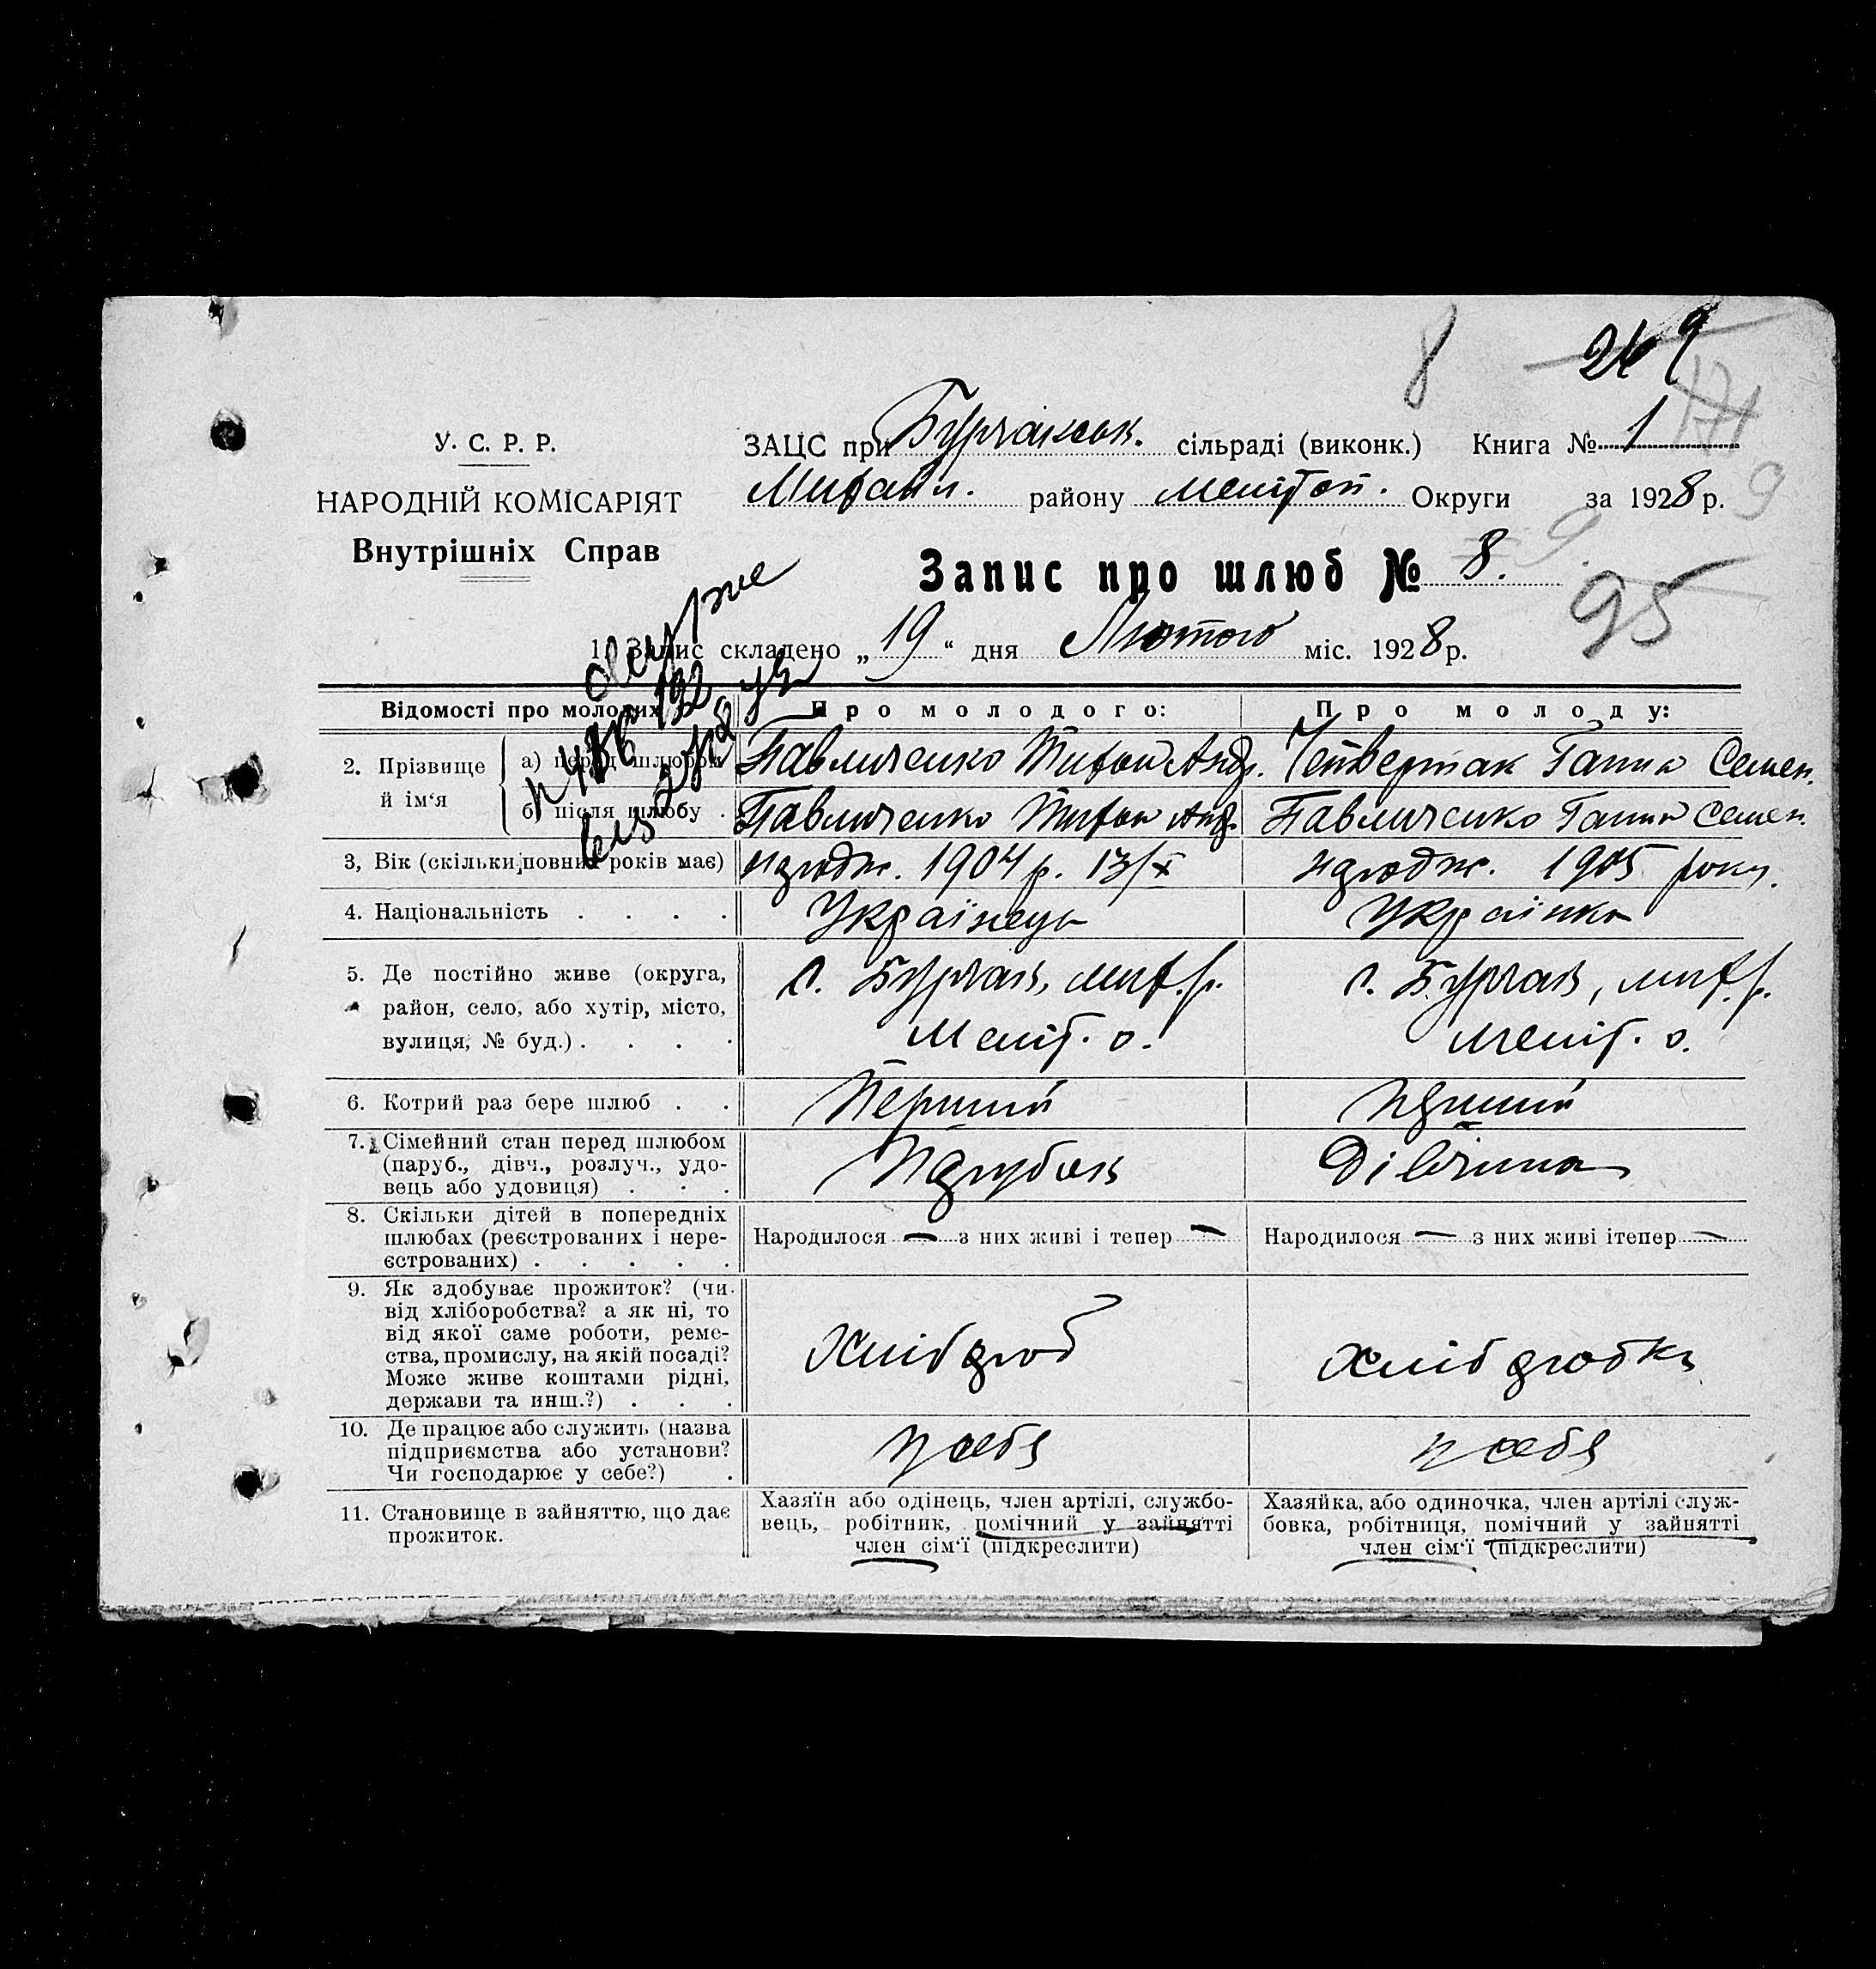 8 269
171
У. С. Р. Р.
ЗАЦС при Бурчакськ. сільраді (виконк.) Книга № 1
НАРОДНІЙ КОМІСАРІЯТ
Михайл. району Меліт. Округи за 1928 р. 9
Внутрішніх Справ
Запис про шлюб № 8. 9.
95
1. Запис складено „19“ дня Лютого міс. 1928 р.
Відомості про молодих
Про молодого:
Про молоду:
2. Прізвище й ім‘я
а) перед шлюбом
Павличенко Тихон Андр.
Четвертак Ганна Семен.
б) після шлюбу .
Павличенко Тихон Анд.
Павличенко Ганна Семен.
3, Вік (скільки повних років має)
народж. 1904 р. 13/X
народж. 1905 року.
4. Національність . . . .
Українець
Українка
5. Де постійно живе (округа,
район, село, або хутір, місто,
вулиця, № буд.) . . . .
с. Бурчак, мих. р.
Меліт. о.
с. Бурчак, мих. р.
меліт. о.
6. Котрий раз бере шлюб . .
Перший
перший
7. Сімейний стан перед шлюбом
(паруб., дівч., розлуч., удо-
вець або удовиця) . . .
Парубок
Дівчина
8. Скільки дітей в попередніх
шлюбах (реєстрованих і нере-
єстрованих) . . . . .
Народилося — з них живі і тепер —
Народилося — з них живі ітепер —
9. Як здобуває прожиток? (чи
від хліборобства? а як ні, то
від якої саме роботи, реме-
ства, промислу, на якій посаді?
Може живе коштами рідні,
держави та инш.?) . . .
Хлібороб
хліборобка
10. Де працює або служить (назва
підприємства або установи?
Чи господарює у себе?) .
у себе
у себе
11. Становище в зайняттю, що дає
прожиток.
Хазяїн або одінець, член артілі, службо-
вець, робітник, помічний у зайнятті
член сім‘ї (підкреслити)
Хазяйка, або одиночка, член артілі служ-
бовка, робітниця, помічний у зайнятті
член сім‘ї (підкреслити)